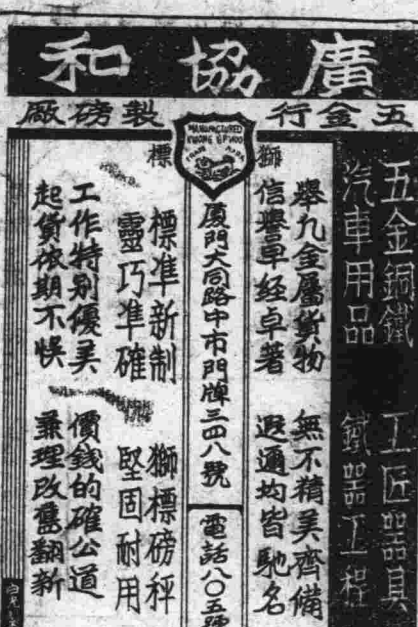 廣協和
五金行
製磅廠
獅標
MANUFACTURED
TRADE MARK
五金銅鐵 工匠器具
汽車用品 鐵器工程
舉凡金屬貨物 無不精美齊備
信譽早經卓著 遐邇均皆馳名
廈門大同路中市門牌三四八號
電話八〇五號
標準新制 獅標磅秤
靈巧準確 堅固耐用
工作特別優美 價錢的確公道
起貨依期不悞 兼理改舊翻新